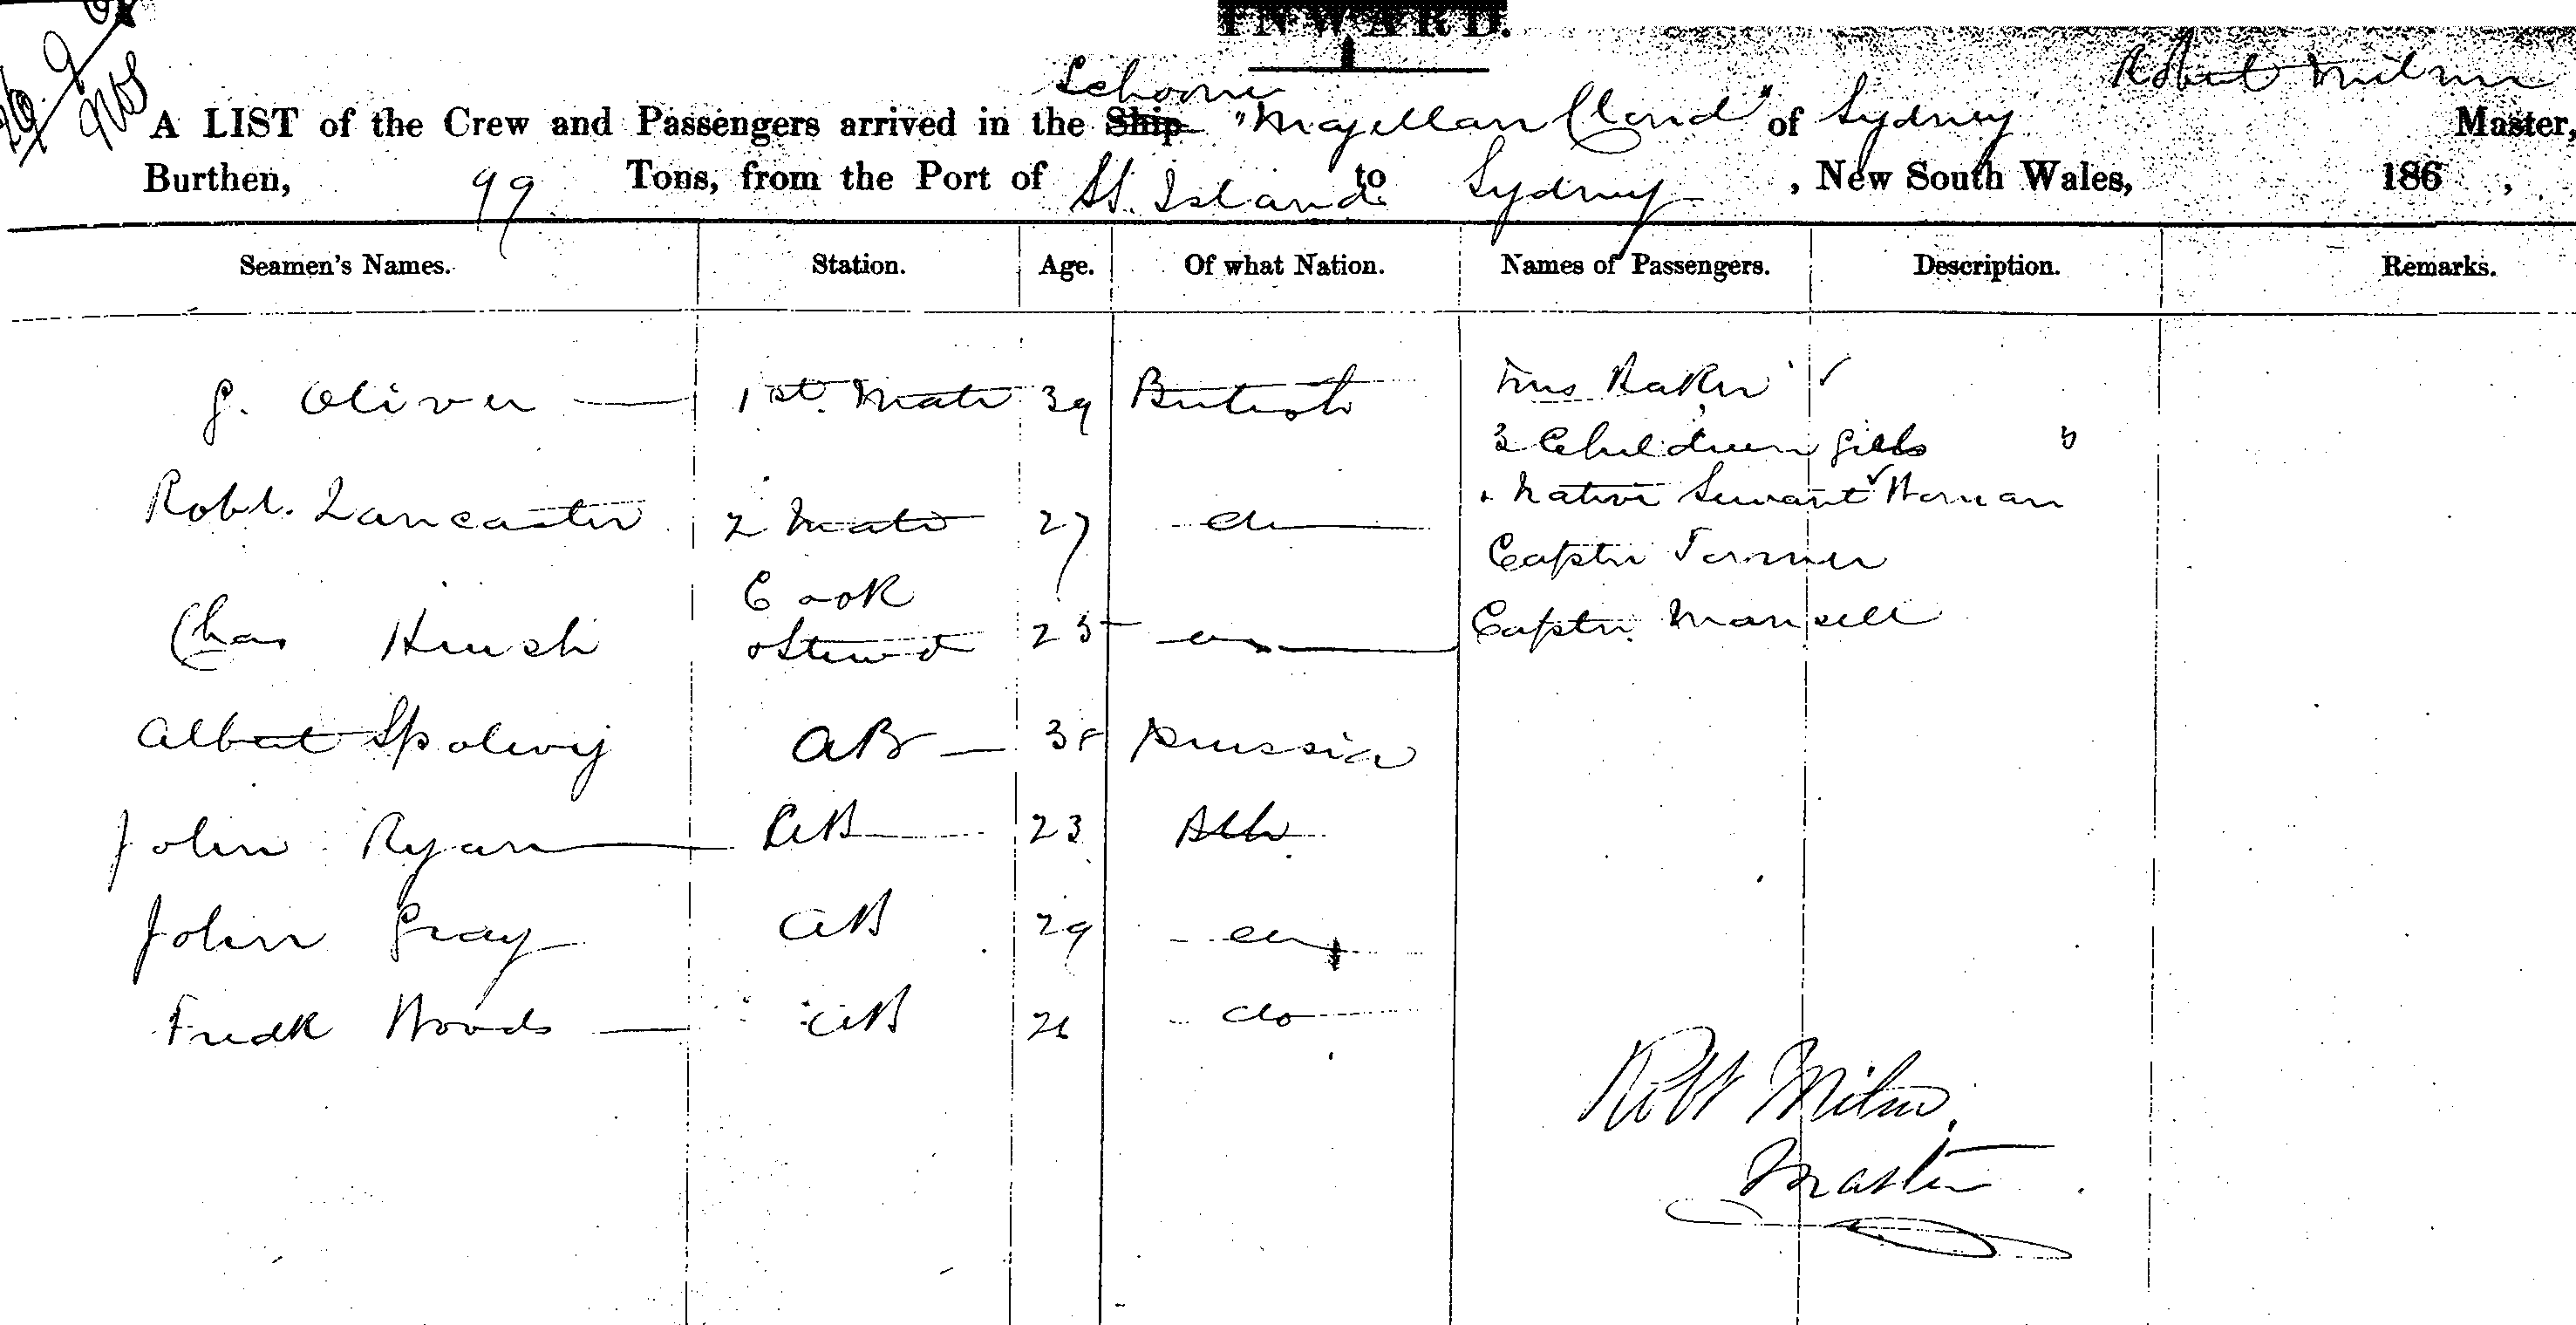 INWARD.
Schooner Robert Milne
A LIST of the Crew and Passengers arrived in the Ship "Magellan Cloud" of Sydney Master,
Burthen, 99 Tons, from the Port of St. Island to Sydney, New South Wales, 186 ,
Seamen's Names. Station. Age. Of what Nation. Names of Passengers. Description. Remarks.
G. Oliver 1st. Mate 39 British Mrs Baker
3 Children girls
Robt. Lancaster 2 Mate 27 do Native Servant Woman
Captn Turner
Cook
Chas Hirsch Steward 25 do Captn. Mansell
Albert AB 38 Prussia
John Ryan AB 23 Btsh
John Gray AB 29 do
Fredk Woods AB 26 do
Robt Milne
Master